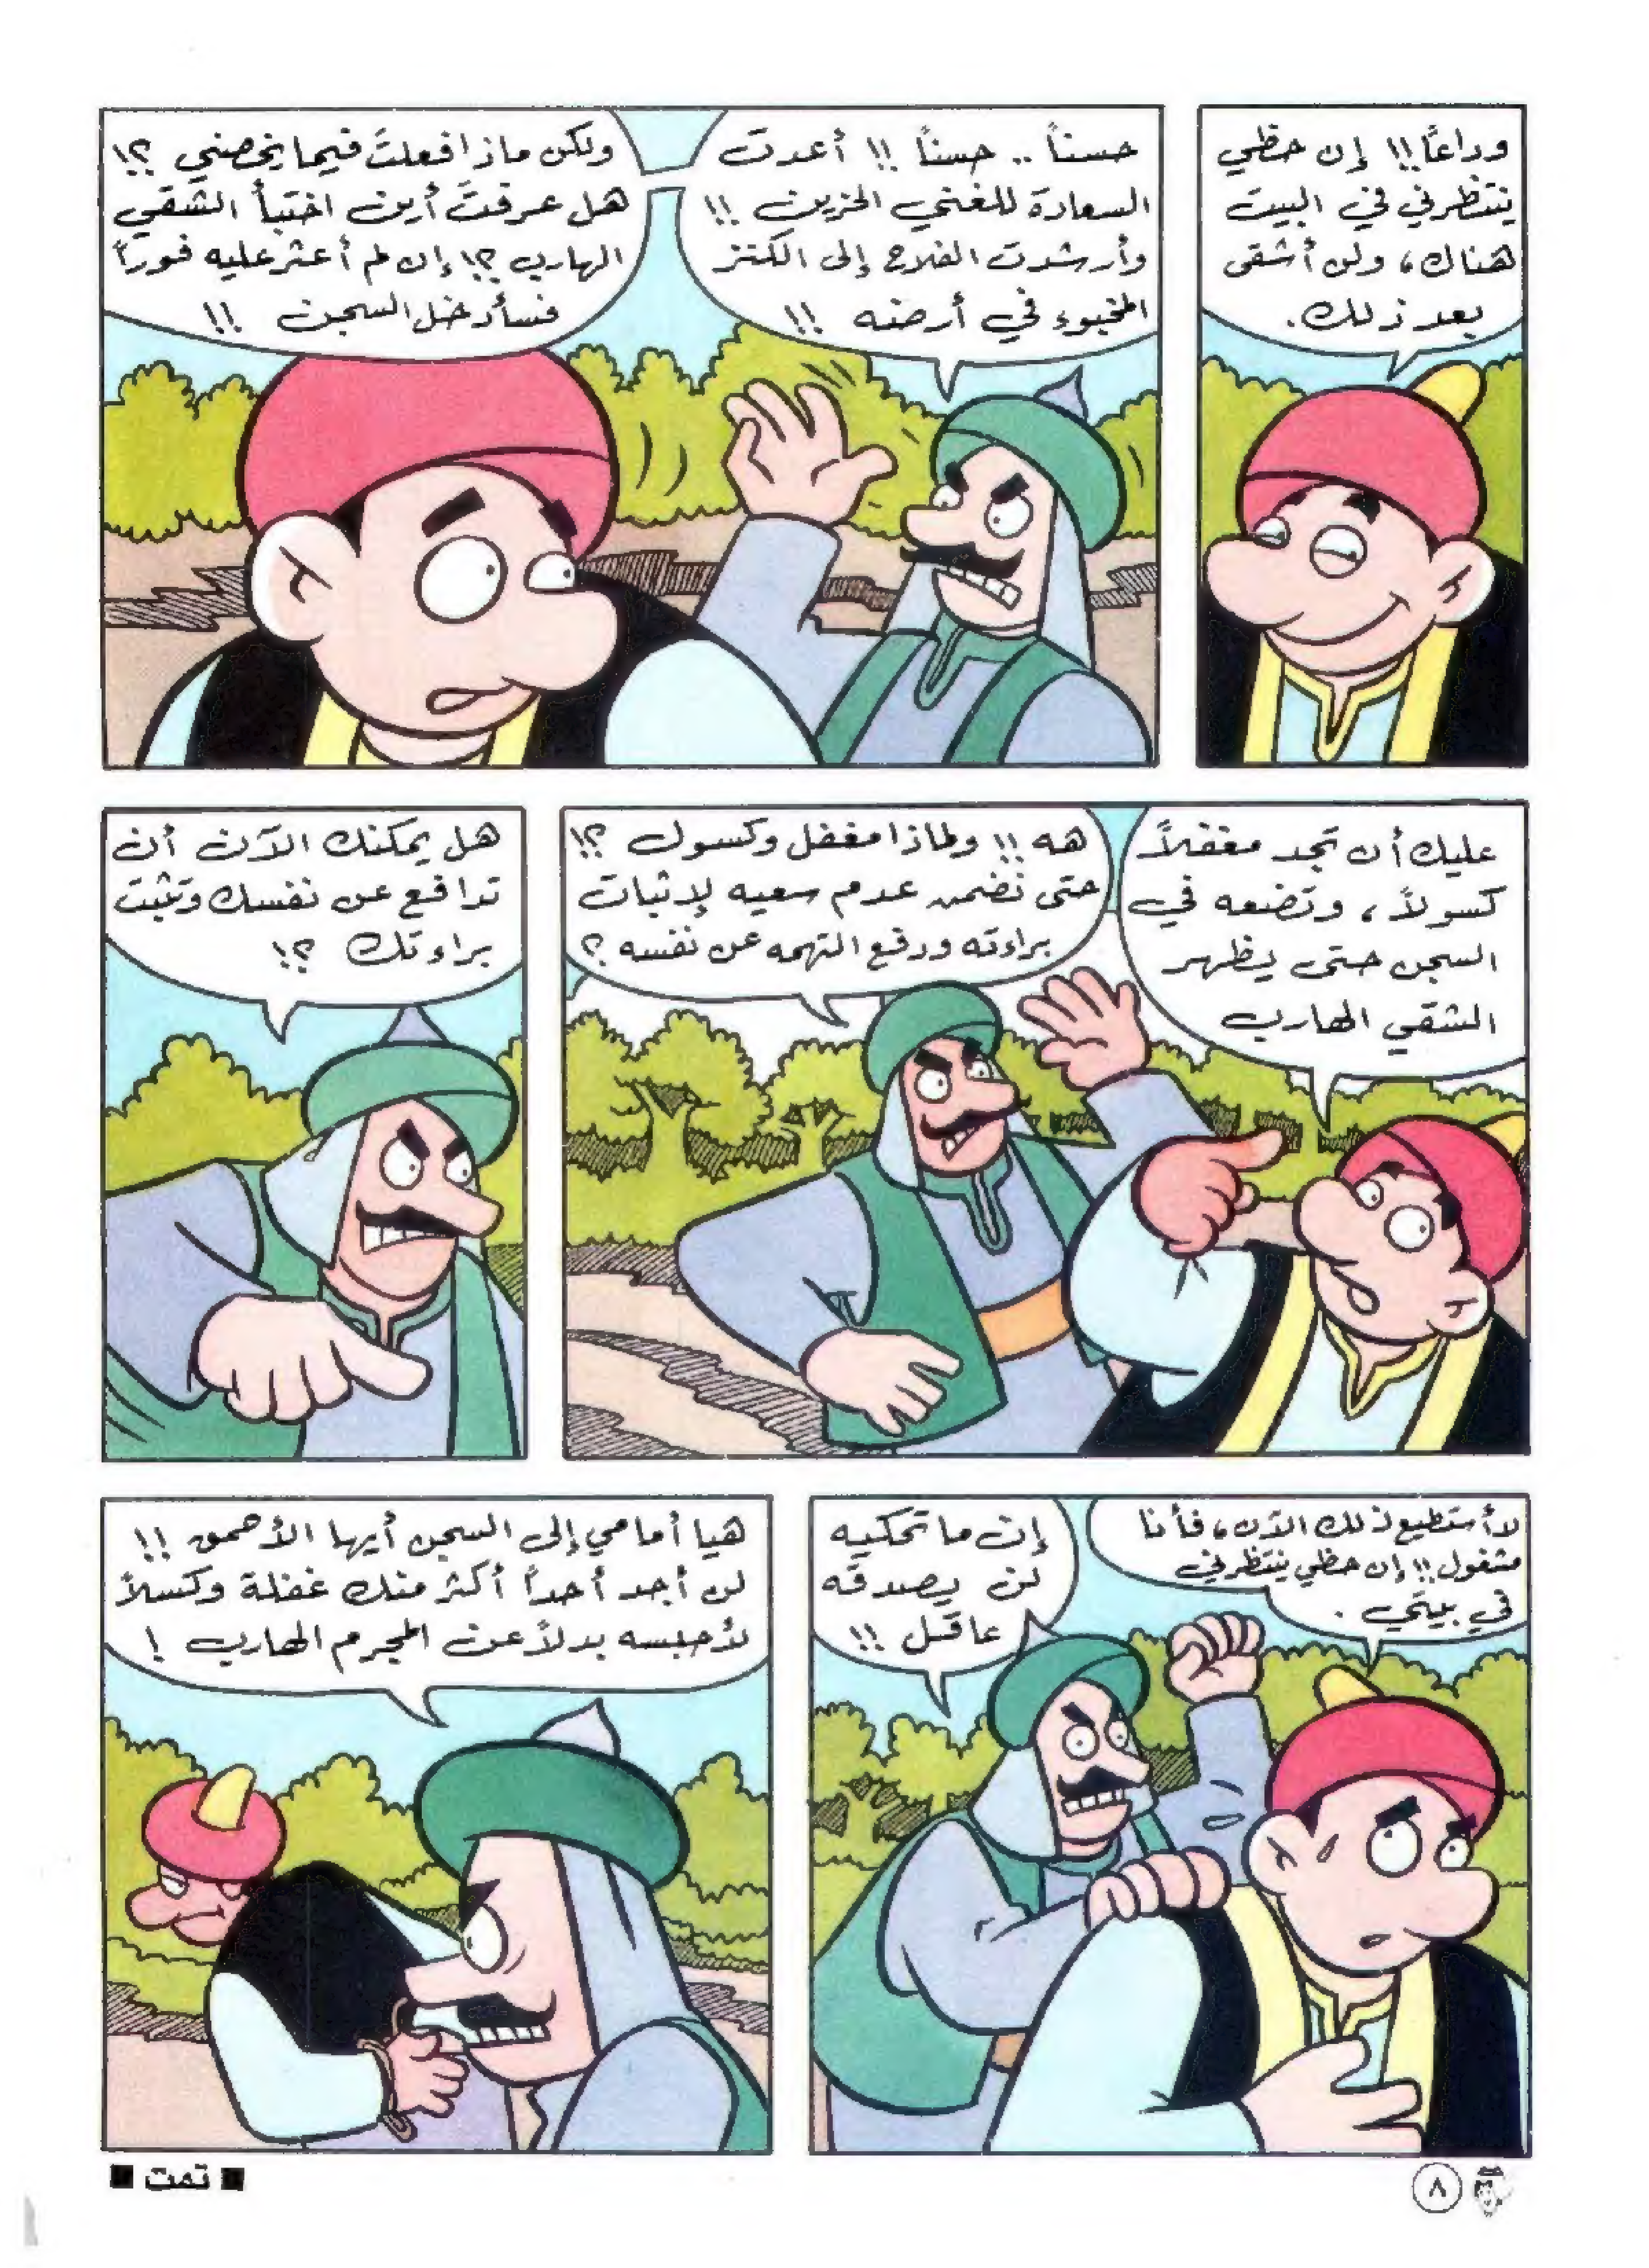 وداعًا!! إن حظي
ينتظرني في البيت
هناك، ولن أشقى
بعد ذلك.
حسناً .. حسناً !! أعدت
السعادة للغني الحزين !!
وأرشدت الفلاح إلى الكنز
المخبوء في أرضه !!
ولكن ماذا فعلتَ فيما يخصني ؟!
هل عرفتَ أين اختبأ الشقي
الهارب ؟! إن لم أعثر عليه فوراً
فسأدخل السجن !!
عليك أن تجد مغفلاً
كسولاً، وتضعه في
السجن حتى يظهر
الشقي الهارب
هه !! ولماذا مغفل وكسول ؟!
حتى نضمن عدم سعيه لإثبات
براءته ودفع التهمه عن نفسه ؟
هل يمكنك الآن أن
تدافع عن نفسك وتثبت
براءتك ؟!
لا أستطيع ذلك الآن، فأنا
مشغول !! إن حظي ينتظرني
في بيتي .
إن ما تحكيه
لن يصدقه
عاقل !!
هيا أمامي إلى السجن أيها الأحمق !!
لن أجد أحداً أكثر منك غفلة وكسلاً
لأحبسه بدلاً عن المجرم الهارب !
٨
■ تمت ■